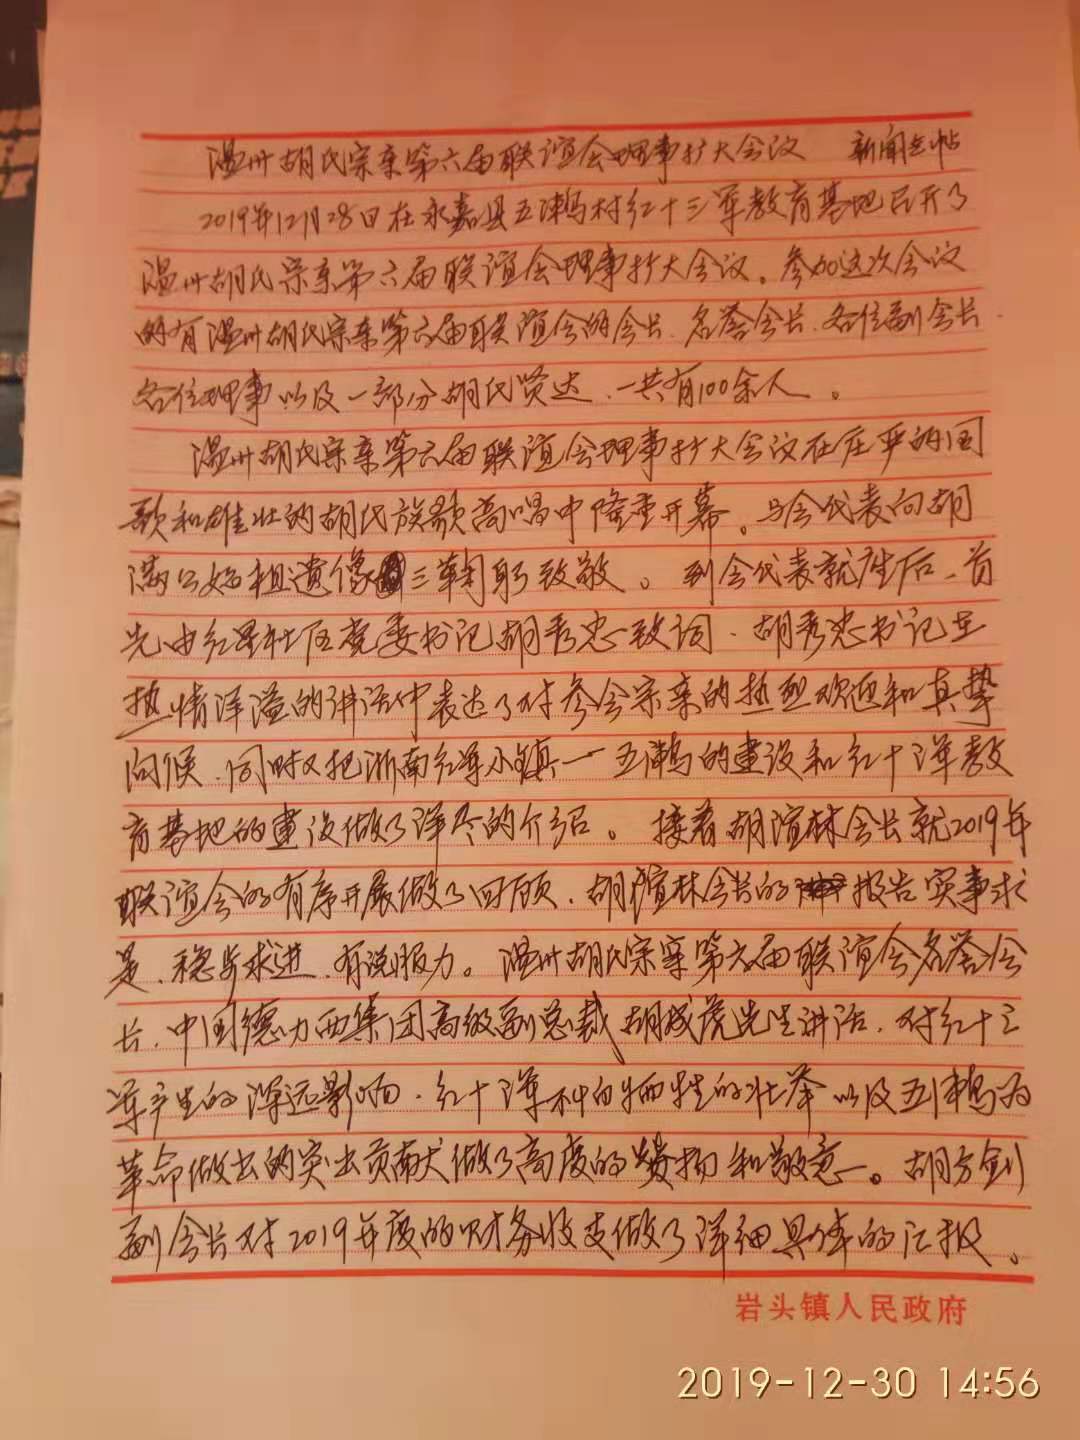 温州胡氏宗亲第六届联谊会理事扩大会议 新闻帖
2019年12月28日在永嘉县五㵟村红十三军教育基地召开了
温州胡氏宗亲第六届联谊会理事扩大会议。参加这次会议
的有温州胡氏宗亲第六届联谊会的会长、名誉会长、各位副会长、
各位理事以及一部分胡氏贤达、一共有100余人。
温州胡氏宗亲第六届联谊会理事扩大会议在庄严的国
歌和雄壮的胡氏族歌高唱中隆重开幕。与会代表向胡
满公始祖遗像三鞠躬致敬。到会代表就座后、首
先由红星社区党委书记胡秀忠致词、胡秀忠书记在
热情洋溢的讲话中表达了对参会宗亲的热烈欢迎和真挚
问候、同时又把浙南红军小镇一五㵟的建设和红十三军教
育基地的建设做了详尽的介绍。接着胡谊林会长就2019年
联谊会的有序开展做了回顾、胡谊林会长的报告实事求
是、稳步求进、有说服力。温州胡氏宗亲第六届联谊会名誉会
长、中国德力西集团高级副总裁胡成虎先生讲话、对红十三
军产生的深远影响、红十三军牺牲的壮举以及五㵟为
革命做出的突出贡献做了高度的赞扬和敬意。胡方剑
副会长对2019年度的财务收支做了详细具体的汇报。
岩头镇人民政府
2019-12-30 14:56